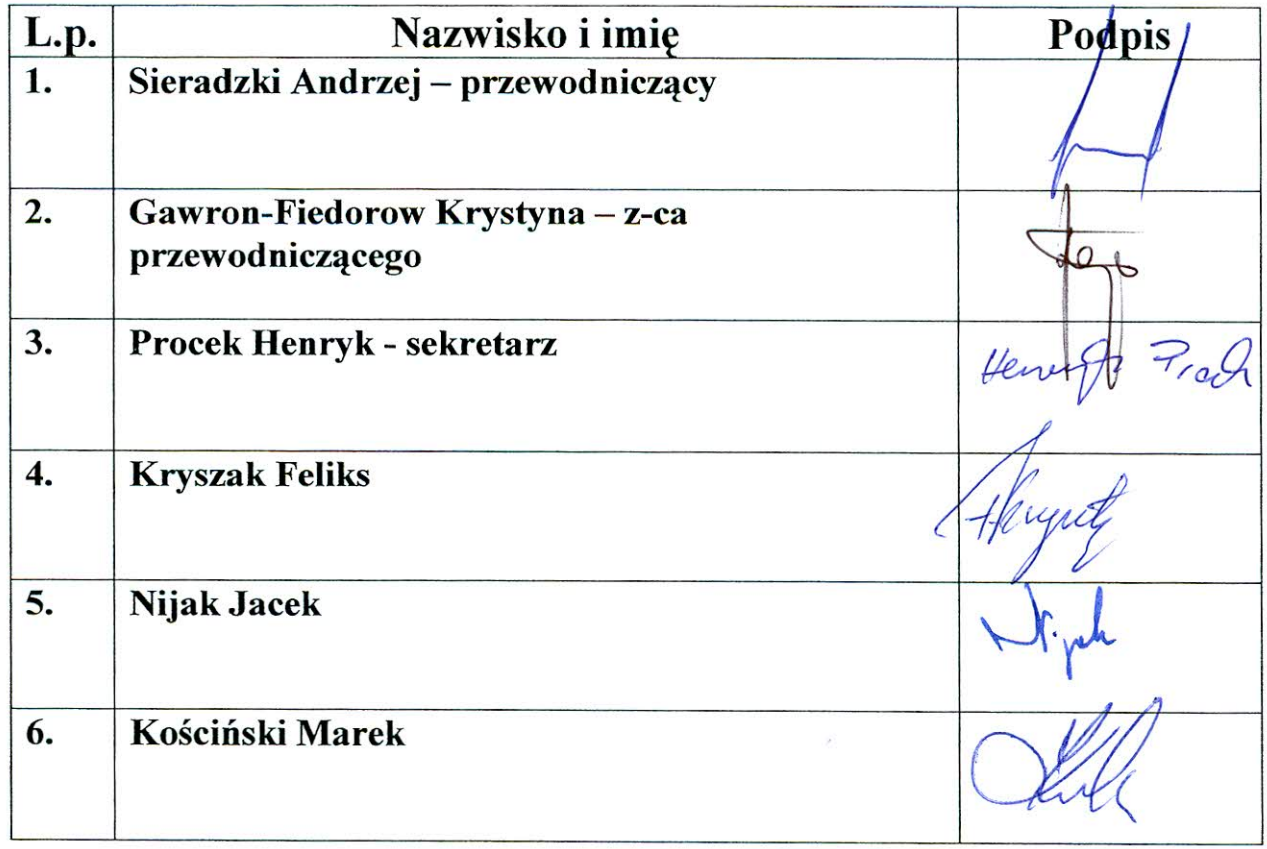 L.p. Nazwisko i imię Podpis
1. Sieradzki Andrzej – przewodniczący
2. Gawron-Fiedorow Krystyna – z-ca
przewodniczącego
3. Procek Henryk - sekretarz
Henryk
4. Kryszak Feliks
5. Nijak Jacek
Nijak
6. Kościński Marek